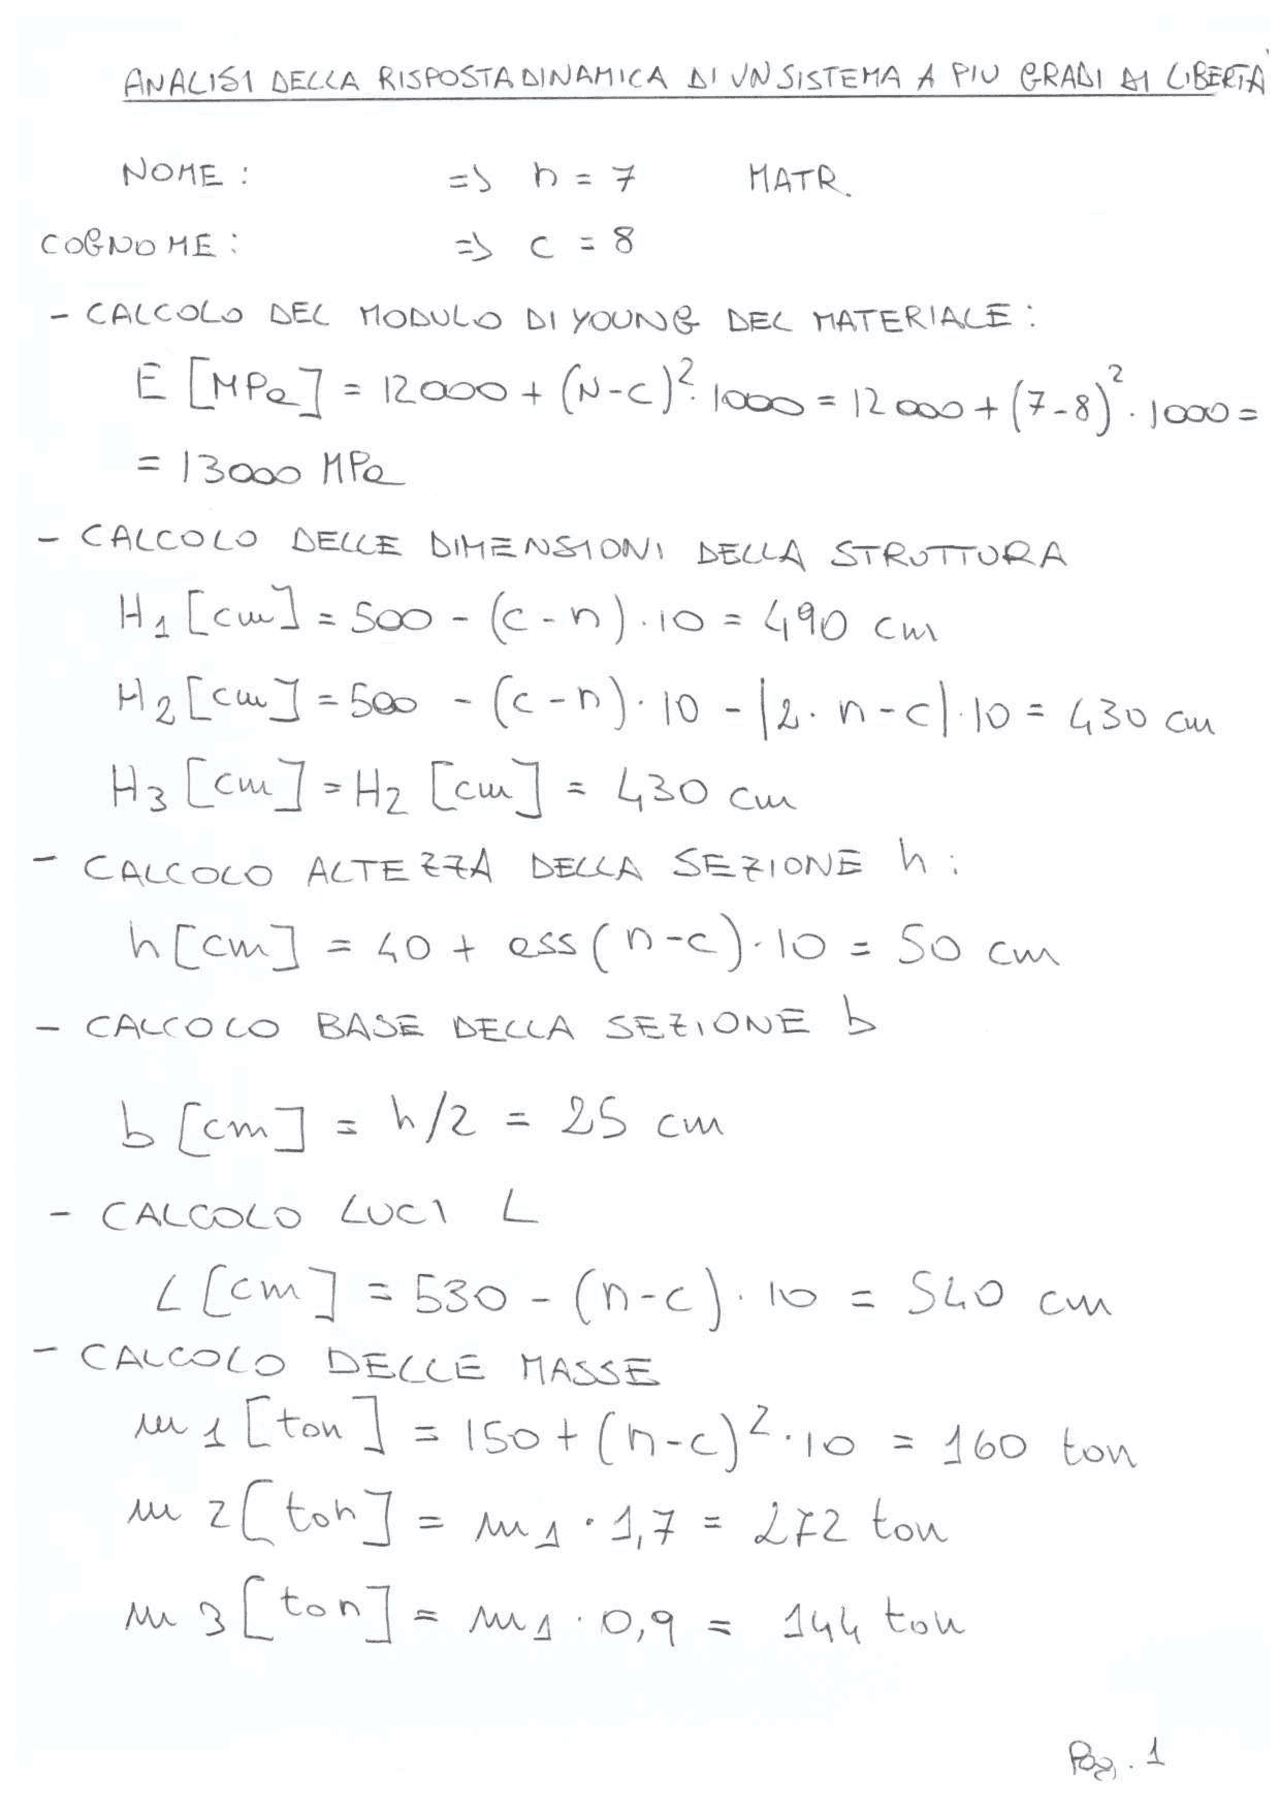 ANALISI DELLA RISPOSTA DINAMICA DI UN SISTEMA A PIU GRADI DI LIBERTA'
NOME : => n = 7 MATR.
COGNOME : => c = 8
- CALCOLO DEL MODULO DI YOUNG DEL MATERIALE :
E [MPa] = 12000 + (N-C)². 1000 = 12000 + (7-8)² . 1000 =
= 13000 MPa
- CALCOLO DELLE DIMENSIONI DELLA STRUTTURA
H1 [cm] = 500 - (c-n) . 10 = 490 cm
H2 [cm] = 500 - (c-n) . 10 - |2. n-c| .10 = 430 cm
H3 [cm] = H2 [cm] = 430 cm
- CALCOLO ALTEZZA DELLA SEZIONE h :
h [cm] = 40 + ass (n-c) . 10 = 50 cm
- CALCOLO BASE DELLA SEZIONE b
b [cm] = h/2 = 25 cm
- CALCOLO LUCI L
L [cm] = 530 - (n-c) . 10 = 540 cm
- CALCOLO DELLE MASSE
m1 [ton] = 150 + (n-c)² . 10 = 160 ton
m2 [ton] = m1 . 1,7 = 272 ton
m3 [ton] = m1 . 0,9 = 144 ton
Pag. 1